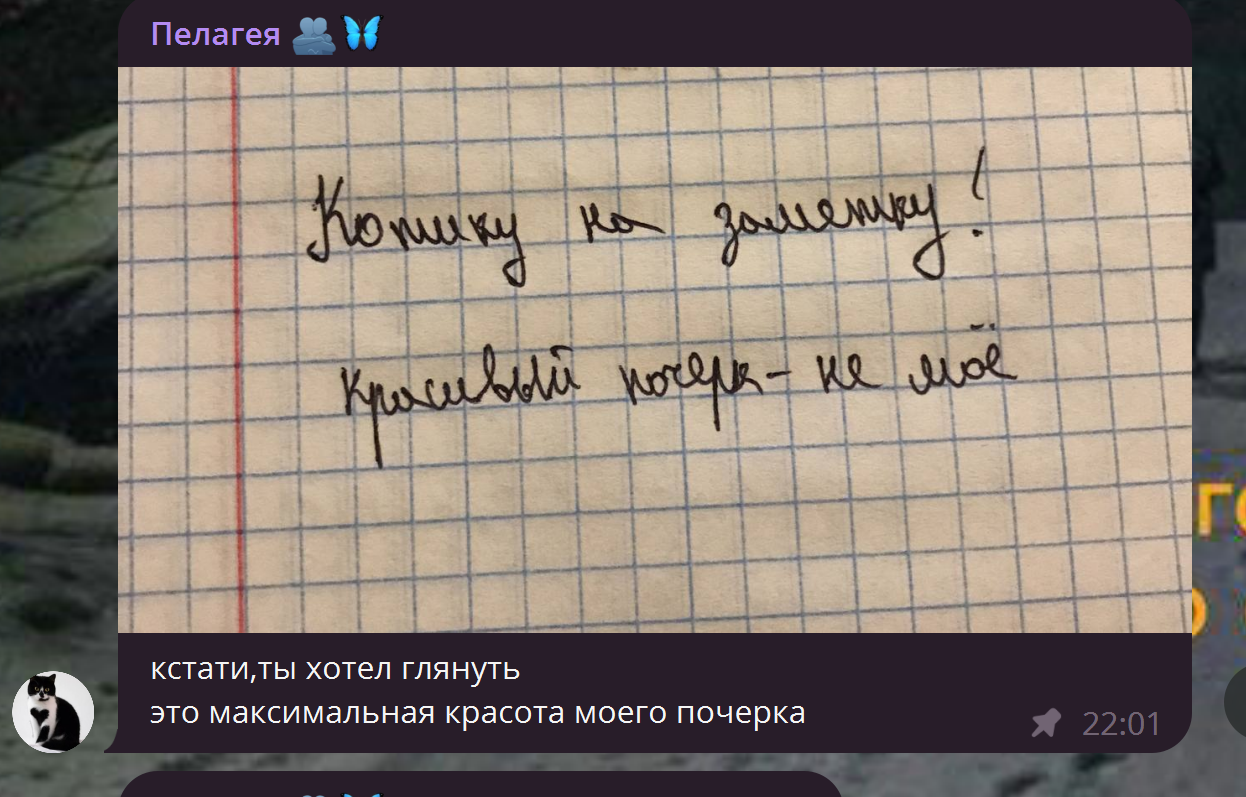 Пелагея 🫂🦋
Котику на заметку!
красивый почерк - не моё
кстати,ты хотел глянуть
это максимальная красота моего почерка
22:01